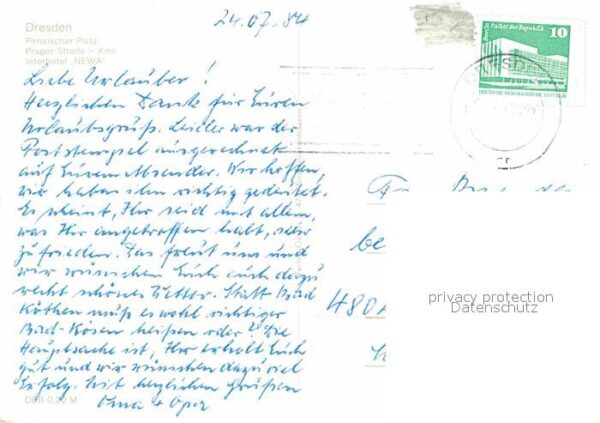 24.07.84
Dresden
Pirnaischer Platz
Prager Straße — Kino
Interhotel „NEWA"
Liebe Urlauber!
Herzlichen Dank für Euren
Urlaubsgruß. Leider war der
Poststempel ausgerechnet
auf Eurem Absender. Wir hoffen,
wir haben ihn richtig gedeutet.
Es scheint, Ihr seid mit allem,
was Ihr angetroffen habt, sehr
zufrieden. Das freut uns und
wir wünschen Euch auch dazu
recht schönes Wetter. Statt Bad
Köthen muß es wohl richtiger
Bad-Kösen heißen oder? Die
Hauptsache ist, Ihr erholt Euch
gut und wir wünschen dazu viel
Erfolg. Mit herzlichen Grüßen
Oma + Opa
DDR 0,20 M
Berlin Palast der Republik
10
DEUTSCHE DEMOKRATISCHE REPUBLIK
DRESD
be
480
privacy protection
Datenschutz